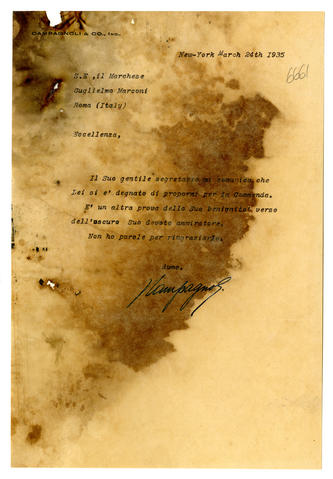 CAMPAGNOLI & CO., Inc.
New-York March 24th 1935
6661
S.E., il Marchese
Guglielmo Marconi
Roma (Italy)
Eccellenza,
Il Suo gentile segretario mi comunica che
Lei si e' degnato di propormi per la Commenda.
E' un altra prova della Sua benignita' verso
dell'oscuro Suo devoto ammiratore.
Non ho parole per ringraziarLa.
Campagnoli